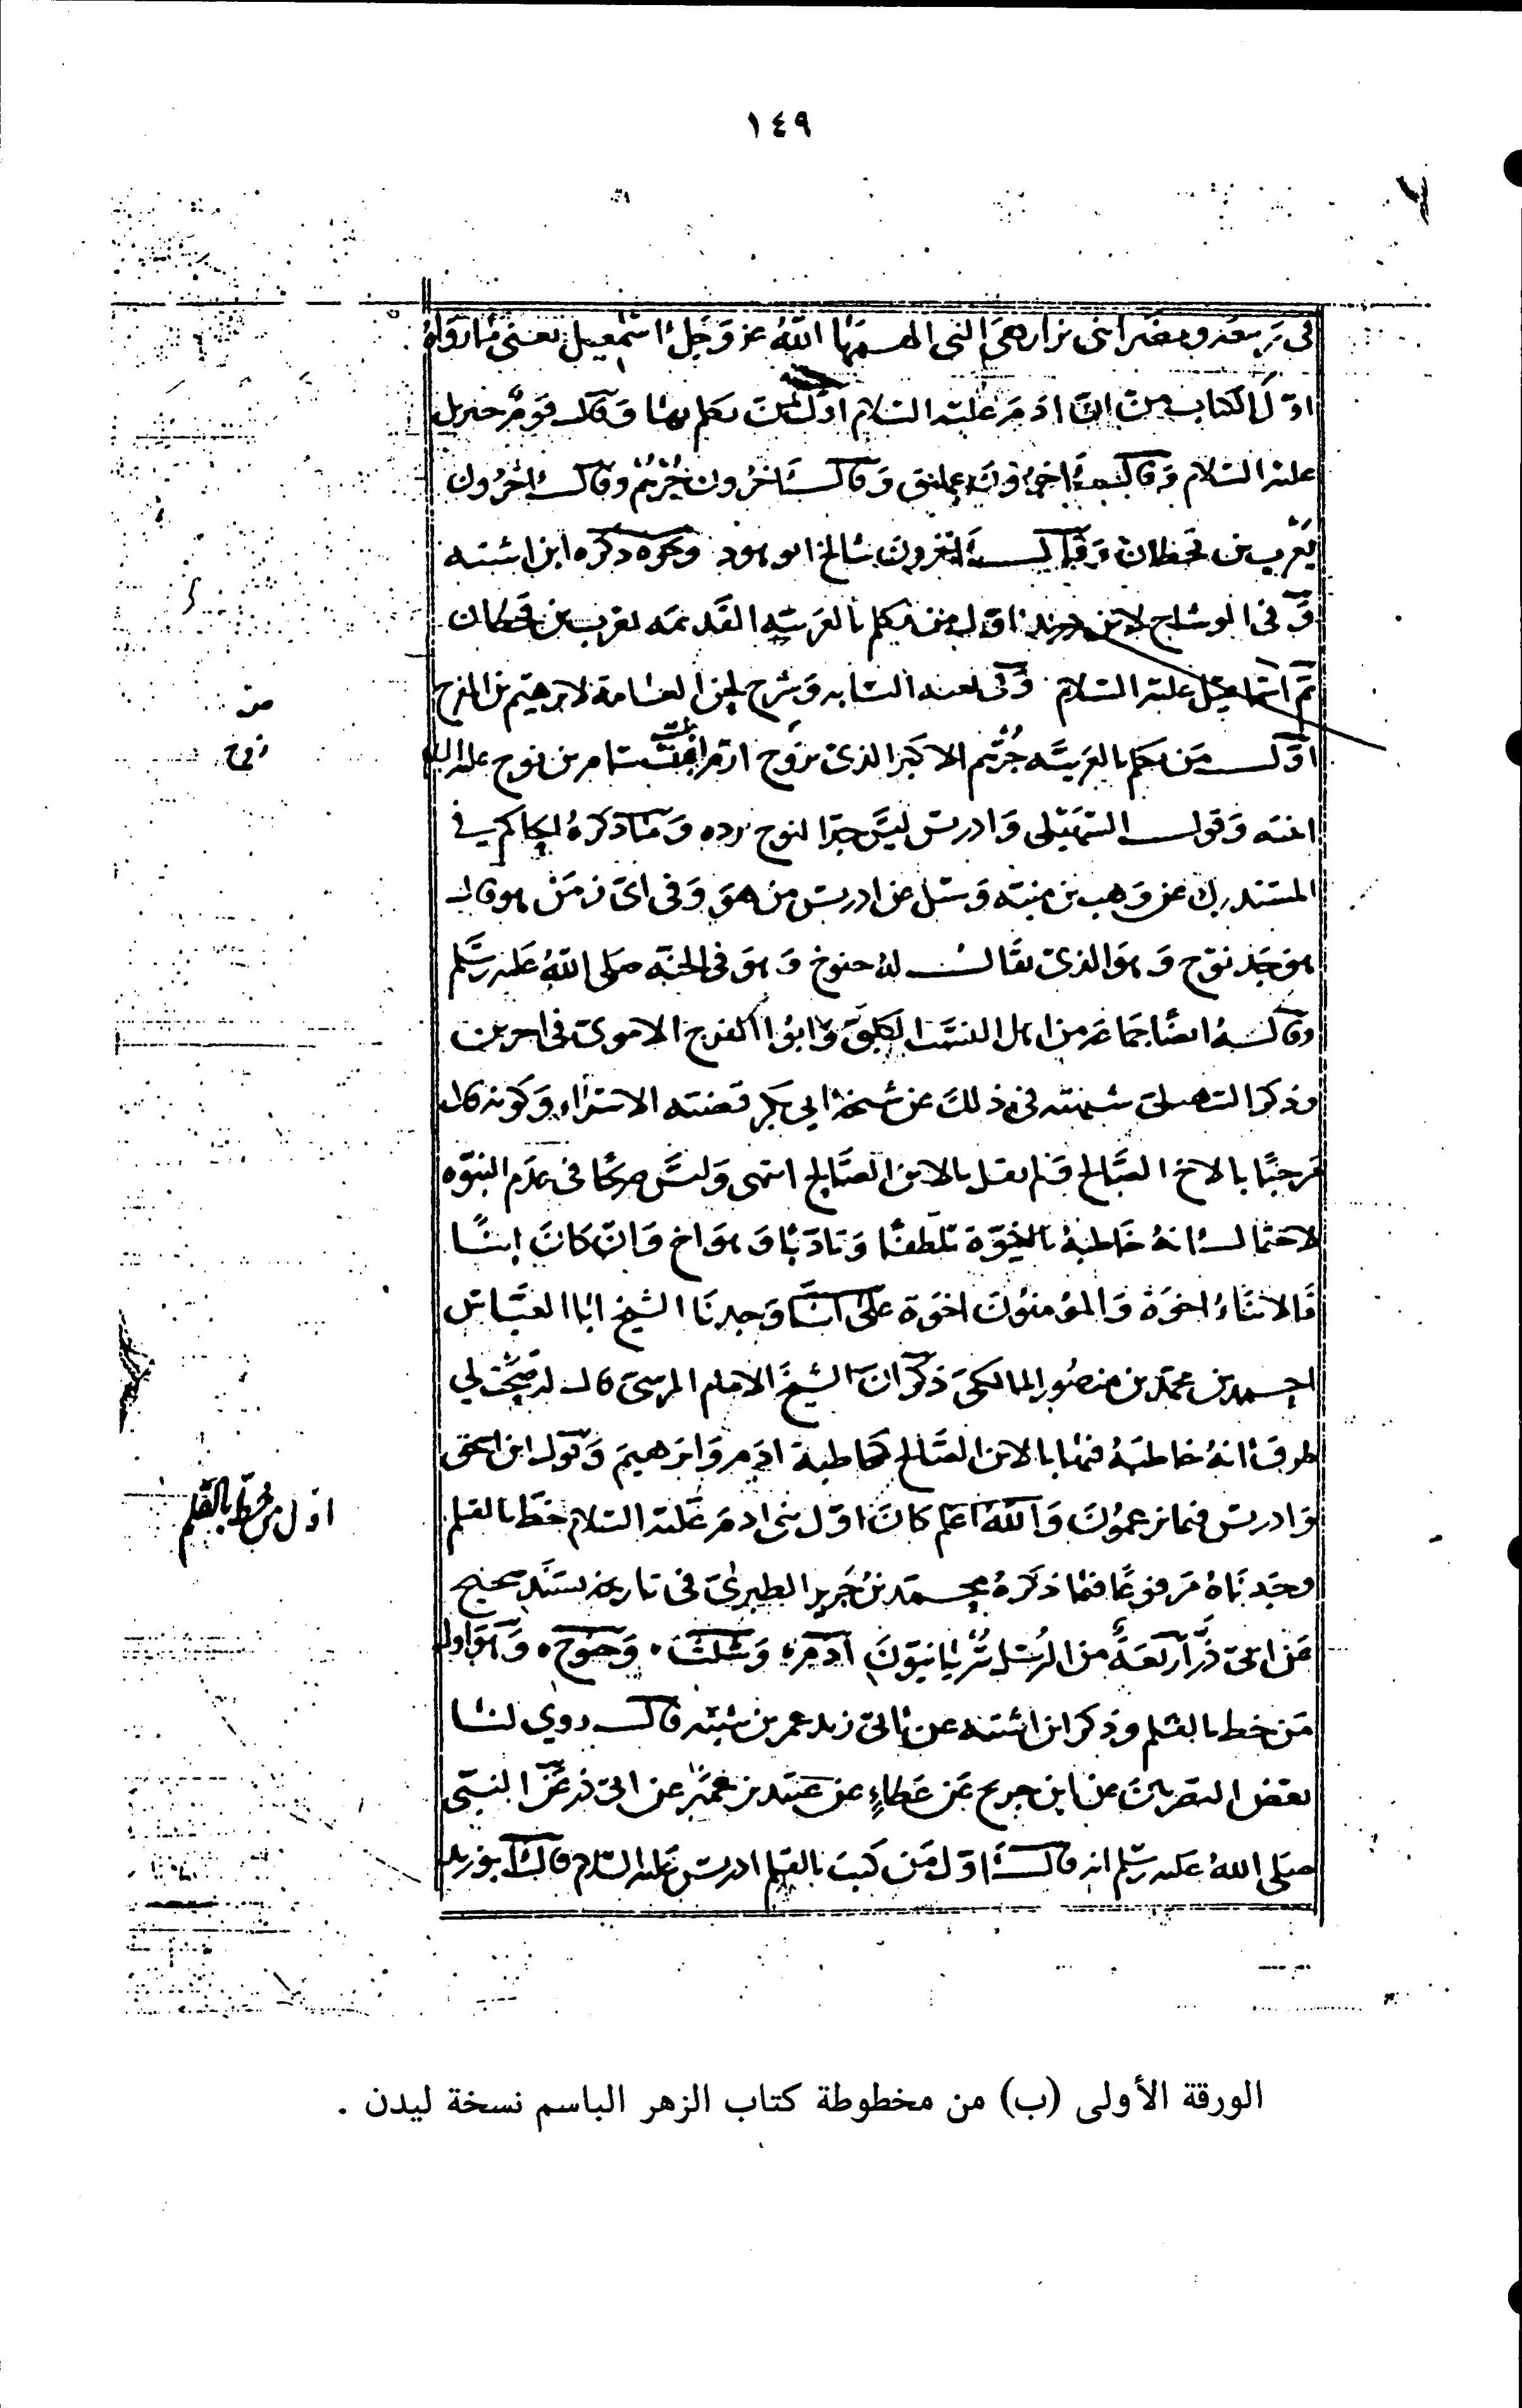 ١٤٩
في ربيعة ومضر ابنى نزار هي التى الهمها الله عز وجل اسمعيل يعنى ما رواه
اول الكتاب من ان ادم عليه السلام اول من تكلم بها وقال قوم جبريل
عليه السلام وقال اخرون عمليق وقال اخرون جرهم وقال اخرون
يعرب بن قحطان وقال اخرون شالخ ابو هود ونحوه ذكره ابن اشته
وفى الوشاح لابن دريد اول من تكلم بالعربيه القديمه يعرب بن قحطان
ثم اسماعيل عليه السلام وفى شرح لحن العامة لابرهيم بن المفرج
صو
اول من تكلم بالعربيه جرهم الاكبر الذى تزوج ارم بنت سام بن نوح عليه السلم
زوج
ابنته وقول السهيلى وادريس ليس جدا لنوح يرده وما ذكره الحاكم في
المستدرك عن وهب بن منبه وسئل عن ادريس من هو وفى اى زمن هو قال
هو جد نوح وهو الذى يقال له خنوخ وهو فى الجنه صلى الله عليه وسلم
وقاله ايضا جماعة من اهل النسب الكلبى وابو الفرج الاموى فى اخرين
وذكر السهيلى شبهته فى ذلك عن شيخه ابى بكر قضيته الاسراء وكونه قال
مرحبا بالاخ الصالح فلم يقل بالابن الصالح انتهى وليس صريحا فى عدم النبوه
لاحتمال انه خاطبه بالاخوة تلطفا وتادبا وهو اخ وان كان ابنا
فالابناء اخوة والمؤمنون اخوة على انا وجدنا الشيخ ابا العباس
احمد بن محمد بن منصور المالكى ذكر ان الشيخ الامام المرسى قال لم صحت لي
طرق انه خاطبه فيها بالابن الصالح كمخاطبة ادم وابرهيم وقول ابن اسحق
وادريس فيما يزعمون والله اعلم كان اول بنى ادم عليه السلام خط بالقلم
اول من خط بالقلم
وجدناه مرفوعا فيما ذكره محمد بن جرير الطبرى فى تاريخه بسند صحيح
عن ابى ذر اربعة من الرسل سريانيون ادم وشيث وخنوخ وهو اول
من خط بالقلم وذكر ابن اشته عن ابى زيد عمر بن شبه قال روي لنا
بعض البصريين عن ابن جريج عن عطاء عن عبيد بن عمير عن ابى ذر عن النبي
صلى الله عليه وسلم انه قال اول من كتب بالقلم ادريس عليه السلام قال ابو زيد
الورقة الأولى (ب) من مخطوطة كتاب الزهر الباسم نسخة ليدن .